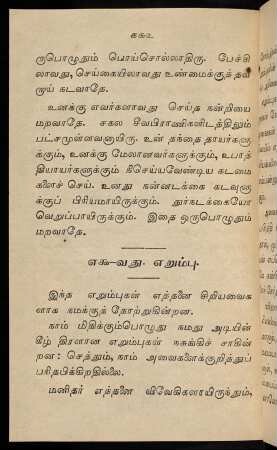 கக௨
ருபொழுதும் பொய்சொல்லாதிரு. பேச்சி
லாவது, செய்கையிலாவது உண்மைக்குத்தவ
றாய் கடவாதே.
உனக்கு எவர்களாவது செய்த நன்றியை
மறவாதே. சகல சீவபிராணிகளிடத்திலும்
பட்சமுன்னவனாயிரு. உன் தந்தை தாயர்களு
க்கும், உனக்கு மேலானவர்களுக்கும், உபாத்
தியாயர்களுக்கும் நீசெய்யவேண்டிய கடமை
களைச் செய். உனது நன்னடக்கை கடவுளு
க்குப் பிரியமாயிருக்கும். துர்நடக்கையோ
வெறுப்பாயிருக்கும். இதை ஒருபொழுதும்
மறவாதே.
எ௬-வது. எறும்பு.
இந்த எறும்புகள் எத்தனை சிறியவைக
ளாக நமக்குத் தோற்றுகின்றன.
நாம் மிதிக்கும்பொழுது நமது அடியின்
கீழ் திரளான எறும்புகள் நசுக்கிச் சாகின்
றன: செத்தும், நாம் அவைகளைக்குறித்துப்
பரிதபிக்கிறதில்லை.
மனிதர் எத்தனை விவேகிகளாயிருந்தும்,